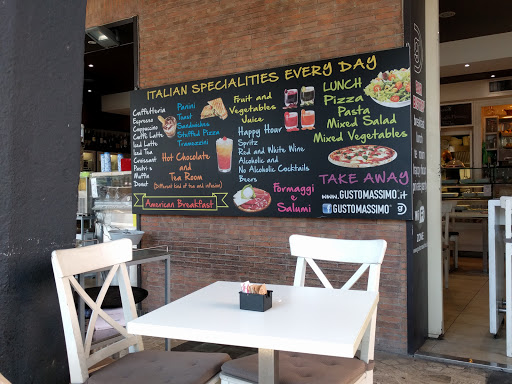 ITALIAN SPECIALITIES EVERY DAY
Caffetteria
Espresso
Cappuccino
Caffè Latte
Iced Latte
Iced Tea
Croissant
Muffin
Donut
Panini
Toast
Sandwiches
Stuffed Pizza
Tramezzini
Hot Chocolate
and
Tea Room
(Different kind of tea and infusion)
American Breakfast
Fruit and
Vegetables
Juice
Happy Hour
Spritz
Red and White Wine
Alcoholic and
No Alcoholic Cocktails
Beers
Formaggi
e
Salumi
LUNCH
Pizza
Pasta
Mixed Salad
Mixed Vegetables
TAKE AWAY
www.GUSTOMASSIMO.it
GUSTOMASSIMO